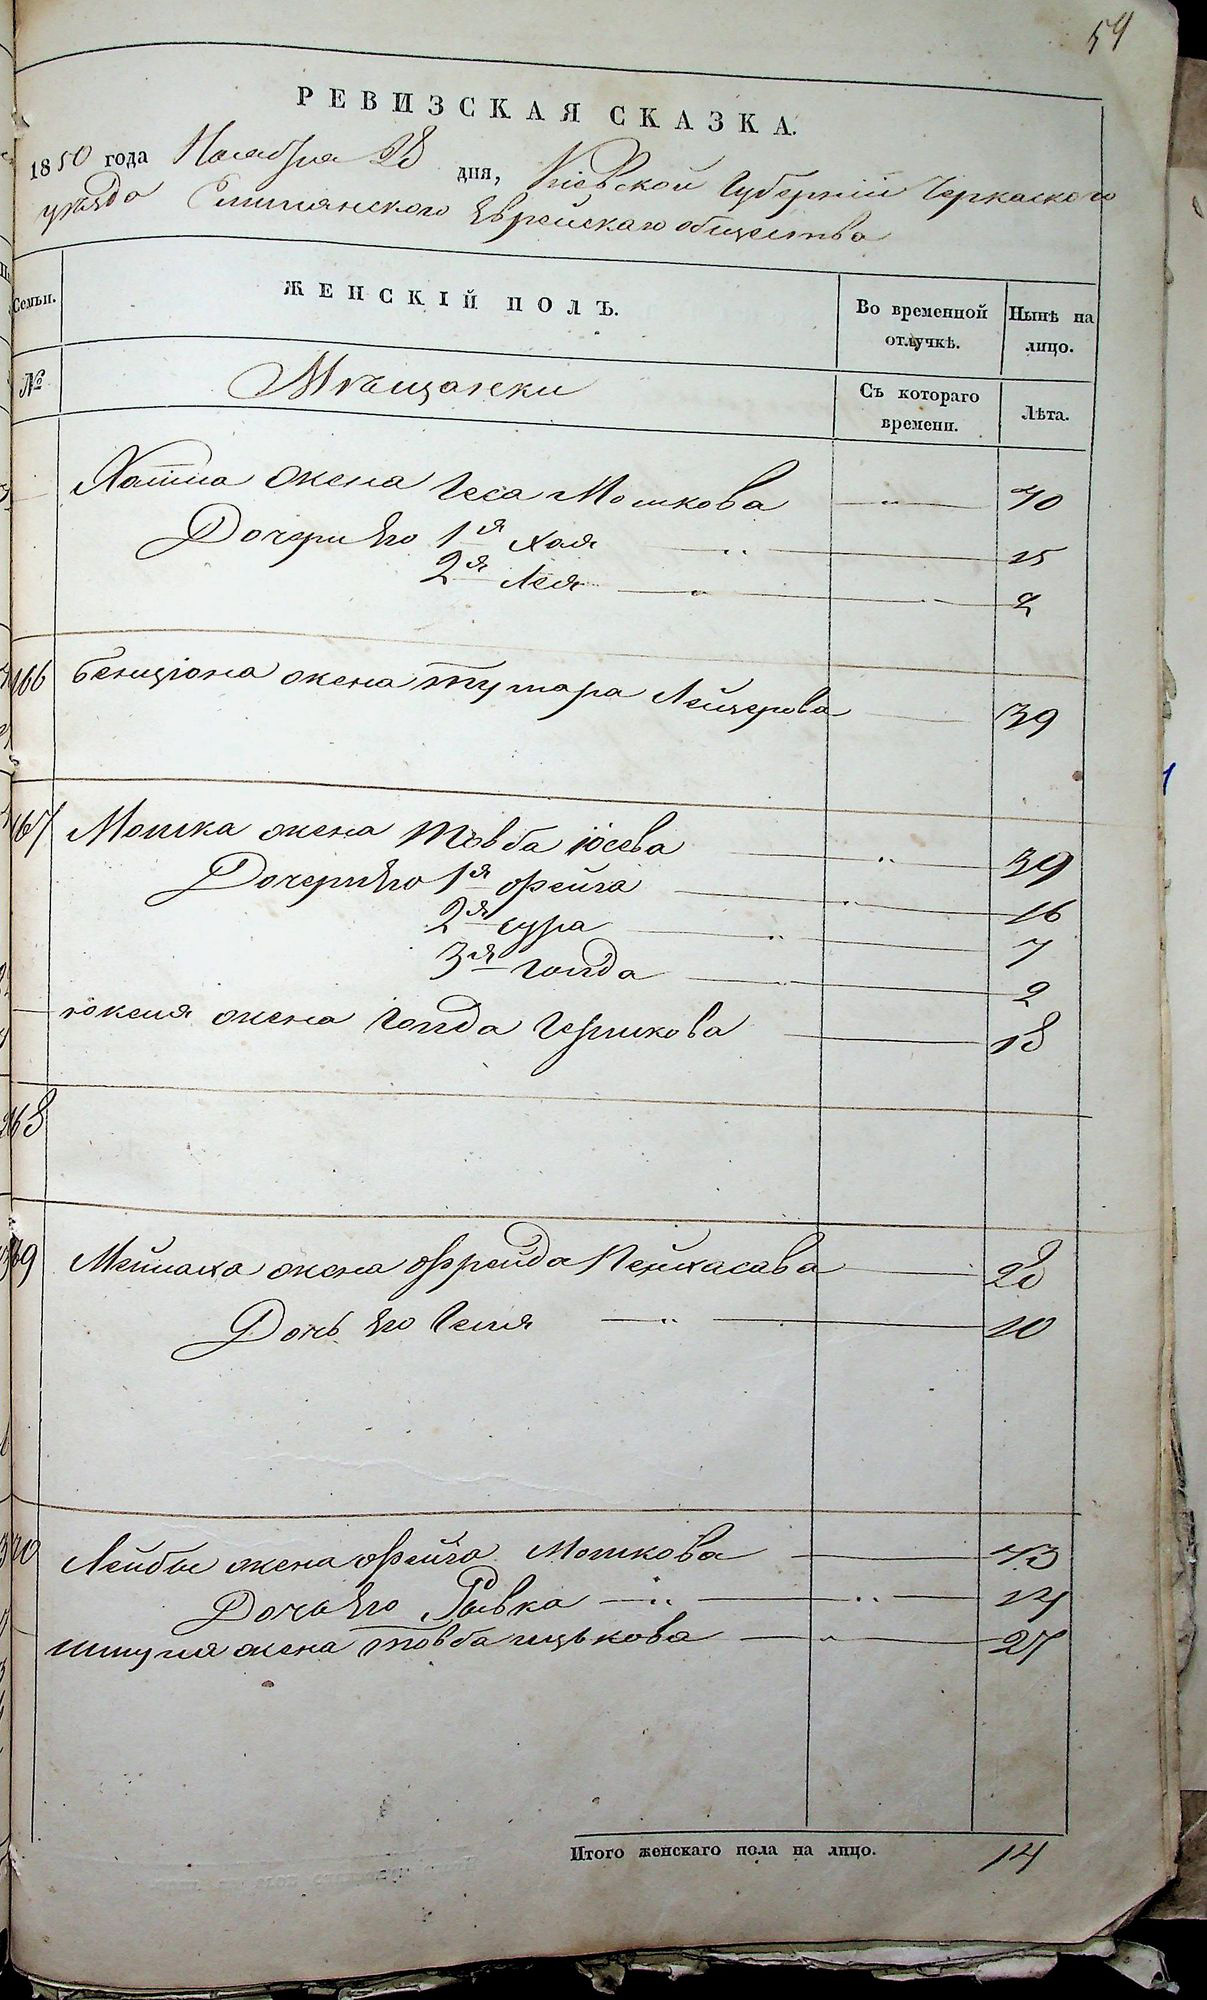 54
РЕВИЗСКАЯ СКАЗКА.
1850 года Ноября 28 дня, Кіевской Губерніи Черкаского
уезда Смилянского Еврейскаго общества
Семьи.
ЖЕНСКІЙ ПОЛЪ.
Во временной отлучкѣ.
Нынѣ на лицо.
№
Мѣщански
Съ котораго времени.
Лѣта.
жена Геса Мошкова 40
Дочери Его 1я Хая 15
2я Лея 2
166 Бенціона жена Лейзерова 39
167 Мошка жена Товба Іосева 39
Дочери Его 1я Фейга 16
2я Сура 7
3я Голда 2
жена Голда Гершкова 18
268
Мейлаха жена Фрейда Пейсахова 28
Дочь Его Геня 10
Лейбы жена Фейга Мошкова 43
Дочь Его Рывка 14
Шмуля жена Товба Ицькова 27
Итого женскаго пола на лицо. 14